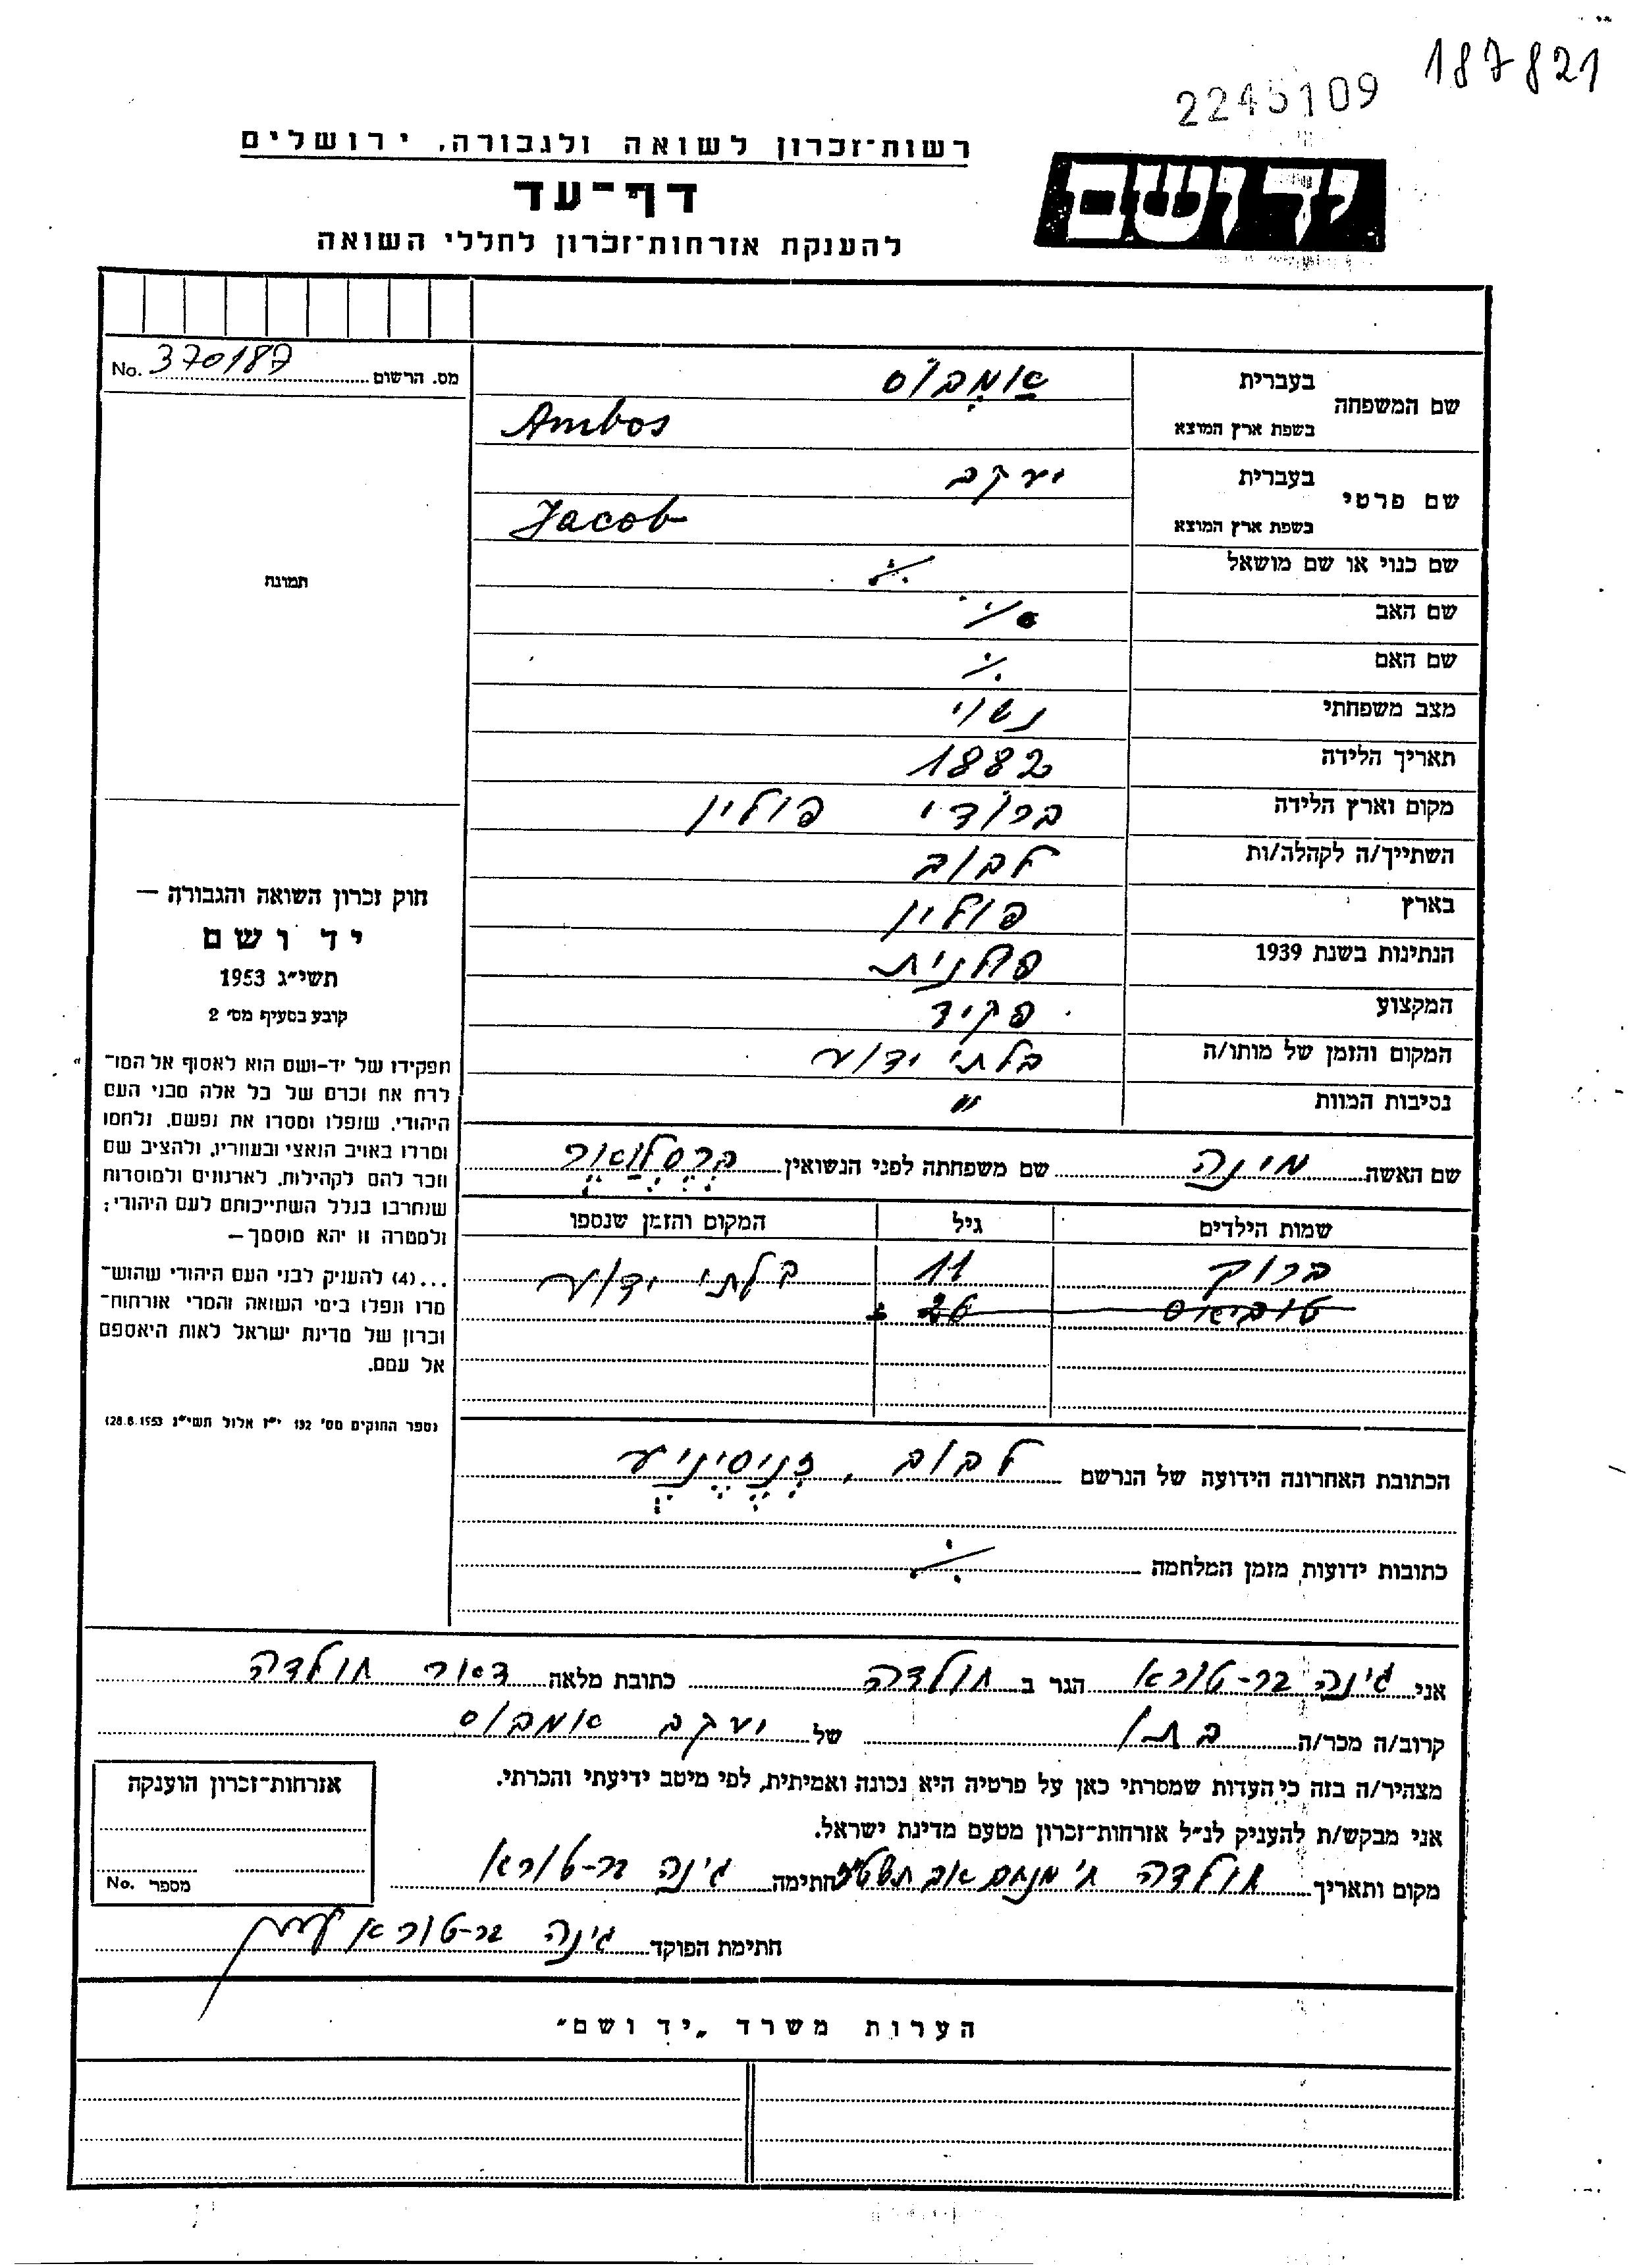 187821
2245109
רשות־זכרון לשואה ולגבורה, ירושלים
יד ושם
דף־עד
להענקת אזרחות־זכרון לחללי השואה
מס. הרשום 370187 No.
שם המשפחה
בעברית אַמְבּוֹס
בשפת ארץ המוצא Ambos
שם פרטי
בעברית יעקב
בשפת ארץ המוצא Jacob
תמונה
שם כנוי או שם מושאל ./.
שם האב ./.
שם האם ./.
מצב משפחתי נשוי
תאריך הלידה 1882
מקום וארץ הלידה ברודי פולין
השתייך/ה לקהלה/ות לבוב
בארץ פולין
הנתינות בשנת 1939 פולנית
המקצוע פקיד
המקום והזמן של מותו/ה בלתי ידוע
נסיבות המוות "
שם האשה מינה שם משפחתה לפני הנשואין
שמות הילדים גיל המקום והזמן שנספו
ברוק 11 בלתי ידוע
טוביאס
הכתובת האחרונה הידועה של הנרשם לבוב,
כתובות ידועות מזמן המלחמה ./.
חוק זכרון השואה והגבורה —
יד ושם
תשי״ג 1953
קובע בסעיף מס׳ 2
תפקידו של יד-ושם הוא לאסוף אל המו־
לדת את זכרם של כל אלה מבני העם
היהודי, שנפלו ומסרו את נפשם, נלחמו
ומרדו באויב הנאצי ובעוזריו, ולהציב שם
וזכר להם לקהילות, לארגונים ולמוסדות
שנחרבו בגלל השתייכותם לעם היהודי;
ולמטרה זו יהא מוסמך—
...(4) להעניק לבני העם היהודי שהוש־
מדו ונפלו בימי השואה והמרי אזרחות־
זכרון של מדינת ישראל לאות היאספם
אל עמם.
(ספר החוקים מס׳ 132 י״ז אלול תשי״ג 28.8.1953)
אני גינה בר-טורא הגר ב חולדה כתובת מלאה דאר חולדה
קרוב/ה מכר/ה בתו של יעקב אמבוס
מצהיר/ה בזה כי העדות שמסרתי כאן על פרטיה היא נכונה ואמיתית, לפי מיטב ידיעתי והכרתי.
אני מבקש/ת להעניק לנ״ל אזרחות־זכרון מטעם מדינת ישראל.
מקום ותאריך חולדה ח׳ מנחם אב חתימה גינה בר-טורא
חתימת הפוקד גינה בר-טורא
אזרחות־זכרון הוענקה
מספר No.
הערות משרד „יד ושם״